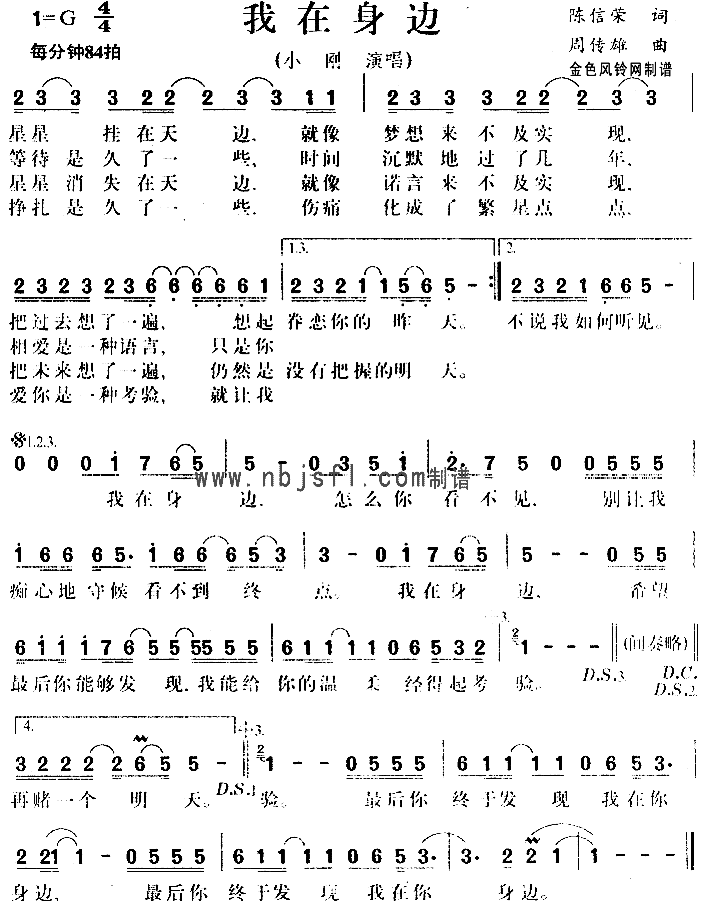 我在身边
1=G 4/4
每分钟84拍
(小 刚 演唱)
陈信荣 词
周传雄 曲
金色风铃网制谱
2 3 3 3 2 2 2 3 3 1 1 | 2 3 3 3 2 2 2 2 3 3
星星 挂在天 边. 就像 梦想来不及实 现.
等待是久了一 些, 时间 沉默地过了几 年、
星星消失在天 边. 就像 诺言来不及实 现.
挣扎是久了一 些. 伤痛 化成了繁星点 点.
1.3. 2.
2 3 2 3 2 3 6 6 6 6 6 6 1 | 2 3 2 1 1 5 6 5 - :| 2 3 2 1 6 6 5 -
把过去想了一遍, 想起 眷恋你的 昨 天。 不说我如何听见。
相爱是一种语言, 只是你
把未来想了一遍, 仍然是没有把握的明 天。
爱你是一种考验, 就让我
1.2.3.
0 0 0 1 7 6 5 | 5 - 0 3 5 1 | 2. 7 5 0 0 5 5 5
www.nbjsfl.com制谱
我在身 边. 怎么你 看不见, 别让我
1 6 6 6 5. 1 6 6 6 5 3 | 3 - 0 1 7 6 5 | 5 - - 0 5 5
痴心地守候 看不到 终 点。 我在身 边, 希望
3.
6 1 1 1 7 6 5 5 5 5 5 | 6 1 1 1 1 1 0 6 5 3 2 | 1 - - - (间奏略)
最后你能够发 现.我能给 你的温 柔 经得起考 验。
D.S.3. D.C.
D.S.2.
4. 3.
3 2 2 2 2 2 6 5 5 - | 1 - 0 5 5 5 | 6 1 1 1 1 1 0 6 5 3.
再赌一个 明 天。 验。 最后你 终于发 现 我在你
D.S.1
2 2 1 1 - 0 5 5 5 | 6 1 1 1 1 1 0 6 5 3. | 3. 2 2 1 1 | 1 - - -
身边, 最后你 终于发 现 我在你 身边。